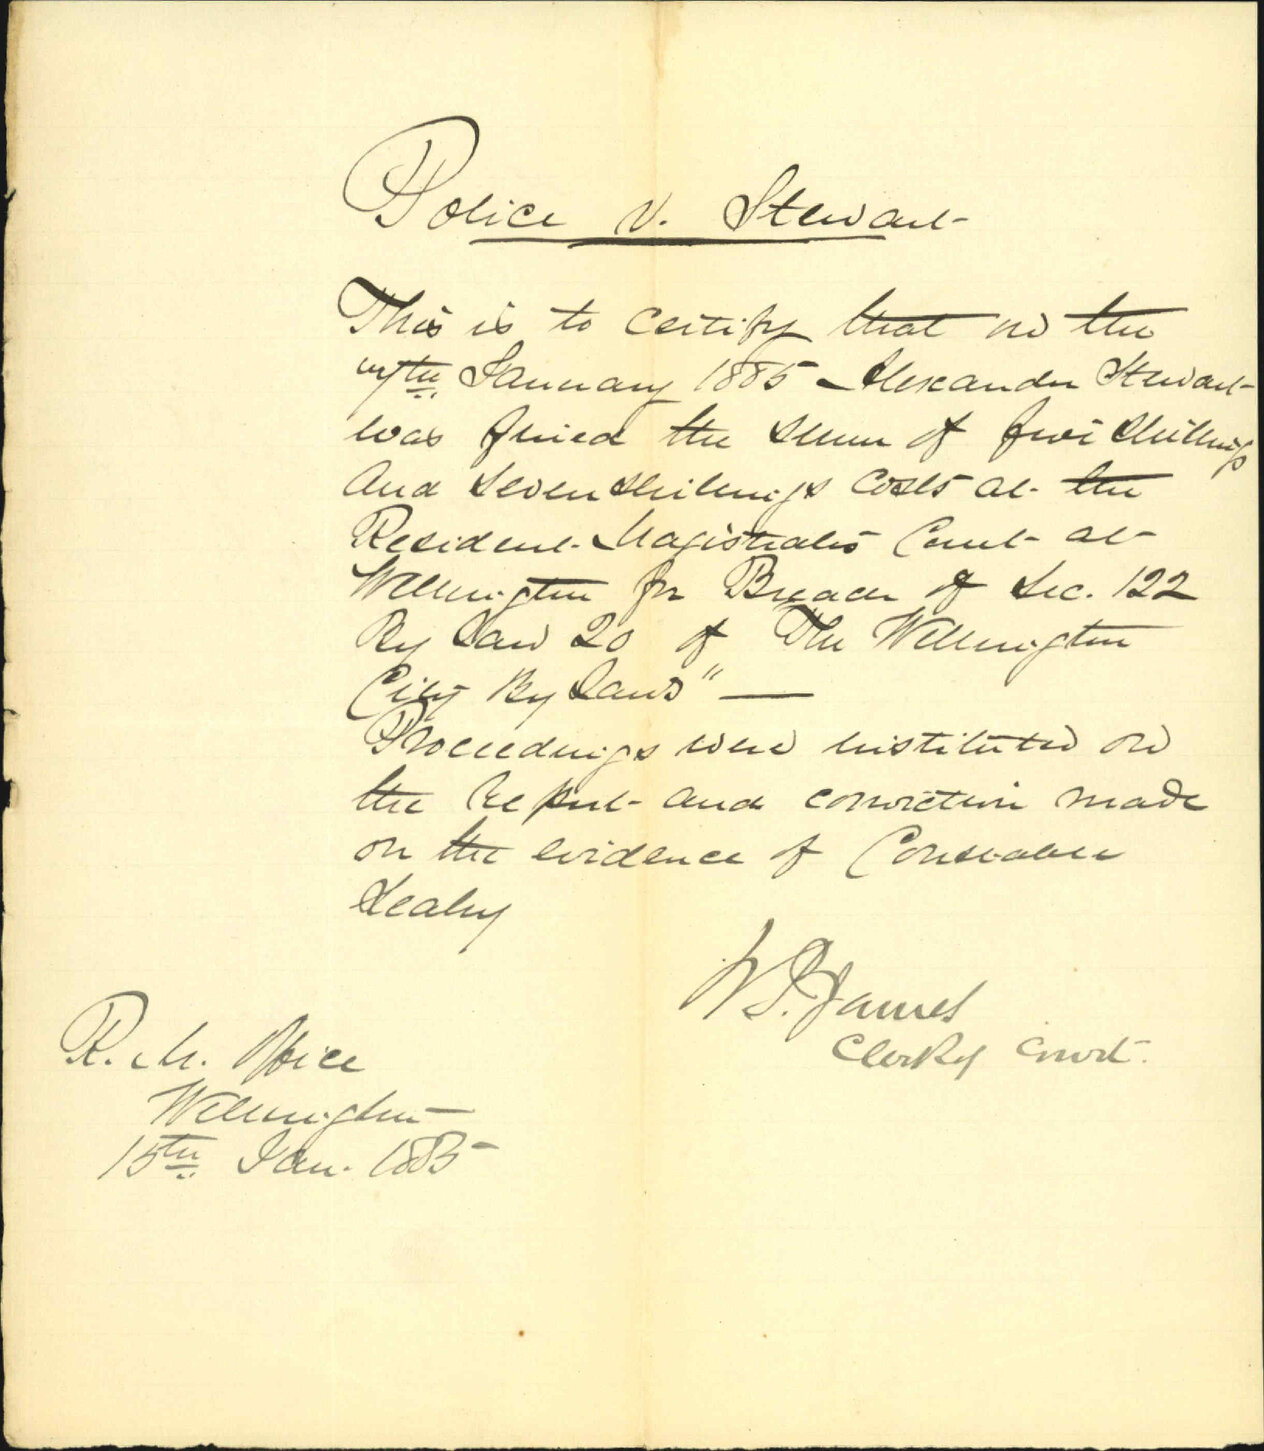 Police v. Stewart
This is to certify that on the
th January 1885 Alexander Stewart
was fined the sum of five shillings
and seven shillings costs at the
Resident Magistrates Court at
Wellington for Breach of Sec. 122
By Law 20 of "The Wellington
City By Laws" —
Proceedings were instituted on
the Report and conviction made
on the evidence of Constable
Leahy
W S. James
Clerk of Court.
R. M. Office
Wellington
15th Jan. 1885